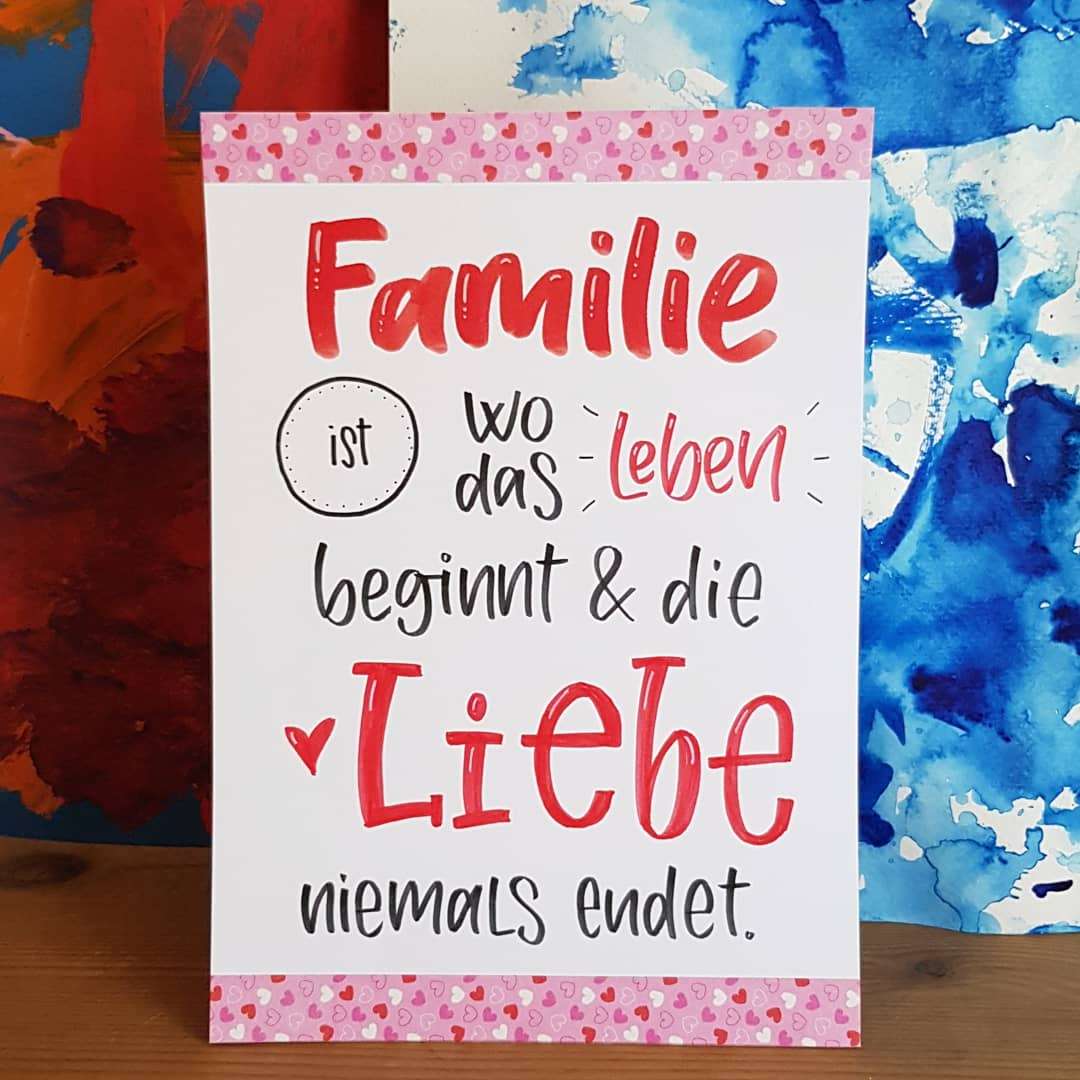 Familie
ist wo das Leben
beginnt & die
Liebe
niemals endet.